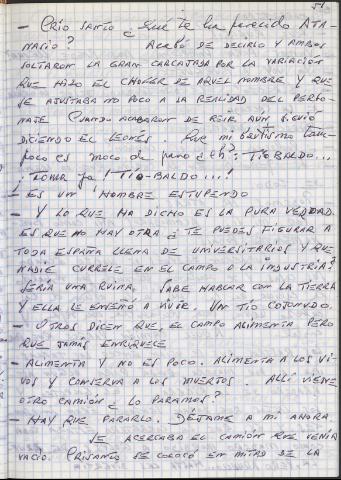 51
- CRÍO SANTO ¿ QUE TE HA PARECIDO ATA-
NASIO? ACABÓ DE DECIRLO Y AMBOS
SOLTARON LA GRAN CARCAJADA POR LA VARIACIÓN
QUE HIZO EL CHOFER DE AQUEL NOMBRE Y QUE
SE AJUSTABA NO POCO A LA REALIDAD DEL PERSO-
NAJE CUANDO ACABARON DE REIR AÚN SIGUIÓ
DICIENDO EL LEONÉS. QUE MI BAUTISMO TAM-
POCO ES MOCO DE PAVO ¿EH?: TIOBALDO...
¡ TOMA YA! TIO-BALDO...!
- ES UN HOMBRE ESTUPENDO
- Y LO QUE HA DICHO ES LA PURA VERDAD.
ES QUE NO HAY OTRA ¿ TE PUEDES FIGURAR A
TODA ESPAÑA LLENA DE UNIVERSITARIOS Y QUE
NADIE CURRELE EN EL CAMPO O LA INDUSTRIA?
SERÍA UNA RUINA. SABE HABLAR CON LA TIERRA
Y ELLA LE ENSEÑÓ A VIVIR. UN TÍO COJONUDO.
- OTROS DICEN QUE, EL CAMPO ALIMENTA PERO
QUE JAMÁS ENRIQUECE
- ALIMENTA Y NO ES POCO. ALIMENTA A LOS VI-
VOS Y CONSERVA A LOS MUERTOS. ALLÍ VIENE
OTRO CAMIÓN ¿ LO PARAMOS?
- HAY QUE PARARLO. DÉJAME A MI AHORA
SE ACERCABA EL CAMIÓN QUE VENÍA
VACÍO. SE COLOCÓ EN MITAD DE LA